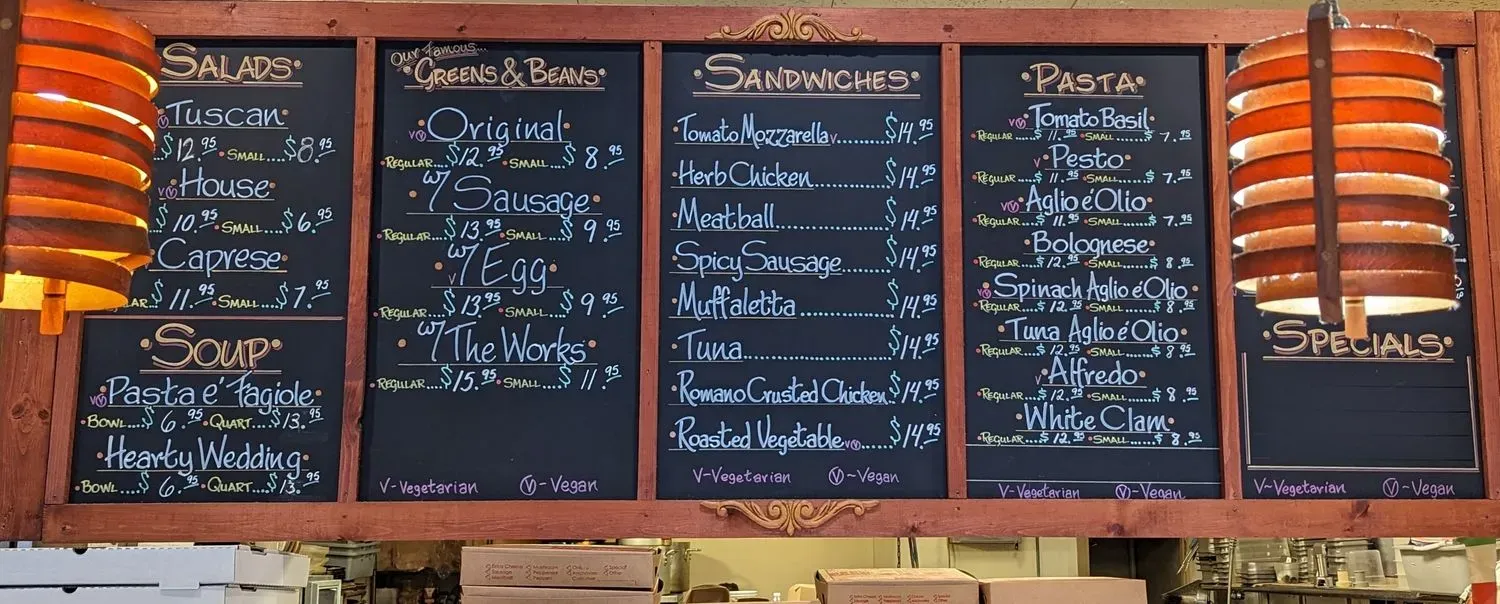 Salads
V Ⓥ Tuscan
$12.95 Small... $8.95
V Ⓥ House
$10.95 Small... $6.95
Caprese
$11.95 Small... $7.95
Soup
V Ⓥ Pasta é Fagiole
Bowl....$6.95 Quart....$13.95
Hearty Wedding
Bowl....$6.95 Quart....$13.95
Our Famous...
Greens & Beans
V Ⓥ Original
Regular...$12.95 Small...$8.95
w/ Sausage
Regular...$13.95 Small...$9.95
V w/ Egg
Regular...$13.95 Small...$9.95
w/ The Works
Regular...$15.95 Small...$11.95
V-Vegetarian Ⓥ-Vegan
Sandwiches
Tomato Mozzarella V......$14.95
Herb Chicken...........$14.95
Meatball................$14.95
Spicy Sausage.......$14.95
Muffaletta..............$14.95
Tuna......................$14.95
Romano Crusted Chicken.$14.95
Roasted Vegetable V Ⓥ.....$14.95
V-Vegetarian Ⓥ~Vegan
Pasta
V Ⓥ Tomato Basil
Regular...$11.95 Small......$7.95
V Pesto
Regular...$11.95 Small......$7.95
V Ⓥ Aglio é Olio
Regular...$11.95 Small......$7.95
Bolognese
Regular...$12.95 Small......$8.95
V Ⓥ Spinach Aglio é Olio
Regular...$12.95 Small......$8.95
Tuna Aglio é Olio
Regular...$12.95 Small......$8.95
V Alfredo
Regular...$12.95 Small......$8.95
White Clam
Regular...$12.95 Small......$8.95
V-Vegetarian Ⓥ-Vegan
Specials
V~Vegetarian Ⓥ~Vegan